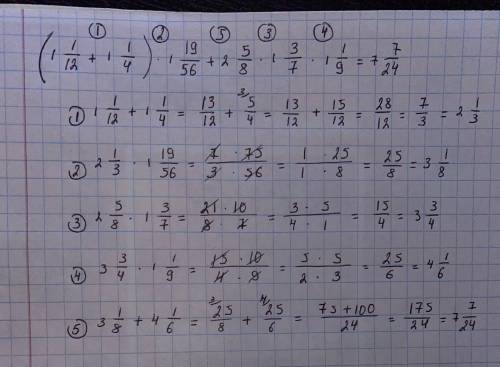 ① ② ⑤ ③ ④
(1 1/12 + 1 1/4) · 1 19/56 + 2 5/8 · 1 3/7 · 1 1/9 = 7 7/24
① 1 1/12 + 1 1/4 = 13/12 + ³5/4 = 13/12 + 15/12 = 28/12 = 7/3 = 2 1/3
② 2 1/3 · 1 19/56 = 7 · 75/3 · 56 = 1 · 25/1 · 8 = 25/8 = 3 1/8
③ 2 5/8 · 1 3/7 = 21 · 10/8 · 7 = 3 · 5/4 · 1 = 15/4 = 3 3/4
④ 3 3/4 · 1 1/9 = 15 · 10/4 · 9 = 5 · 5/2 · 3 = 25/6 = 4 1/6
⑤ 3 1/8 + 4 1/6 = ³25/8 + ⁴25/6 = 75 + 100/24 = 175/24 = 7 7/24